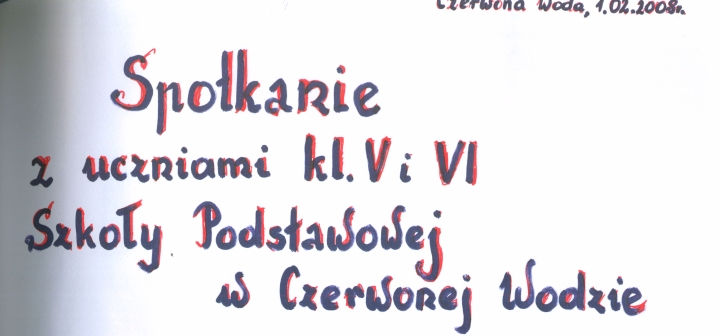 Czerwona Woda, 1.02.2008r.
Spotkanie
z uczniami kl. V i VI
Szkoły Podstawowej
w Czerwonej Wodzie